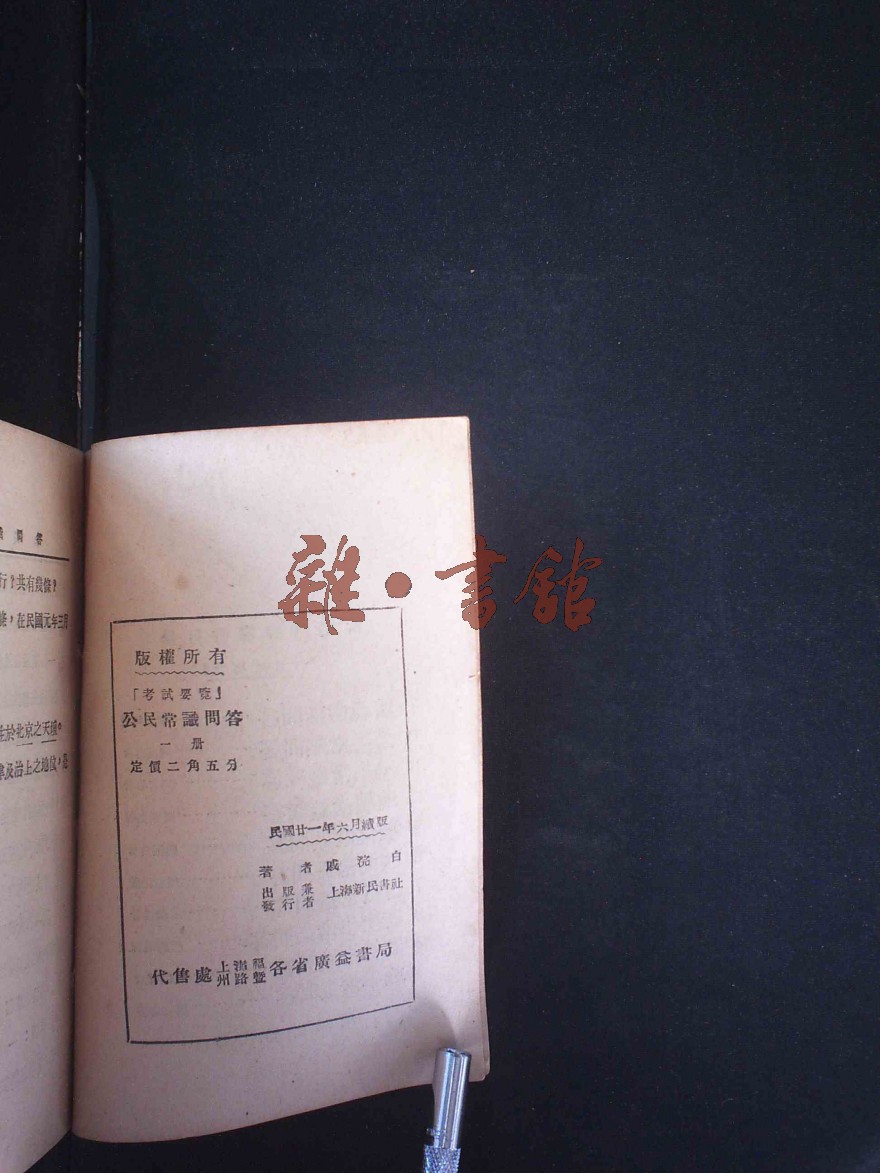 雜·書館
問答
行？共有幾條？
條，在民國元年三月
生於北京之天壇。
掌及治上之地位，是
版權所有
「考試要覽」
公民常識問答
一册
定價二角五分
民國廿一年六月續版
著者戚浣白
出版兼發行者 上海新民書社
代售處 上海福州路暨各省廣益書局